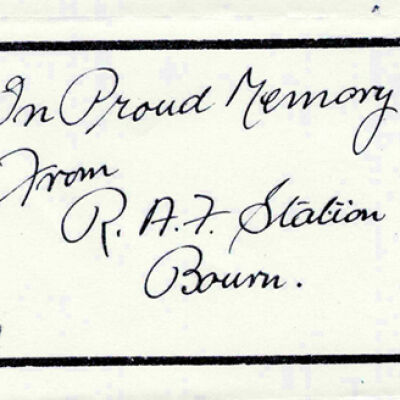 In Proud Memory
From
R. A. F. Station
Bourn.